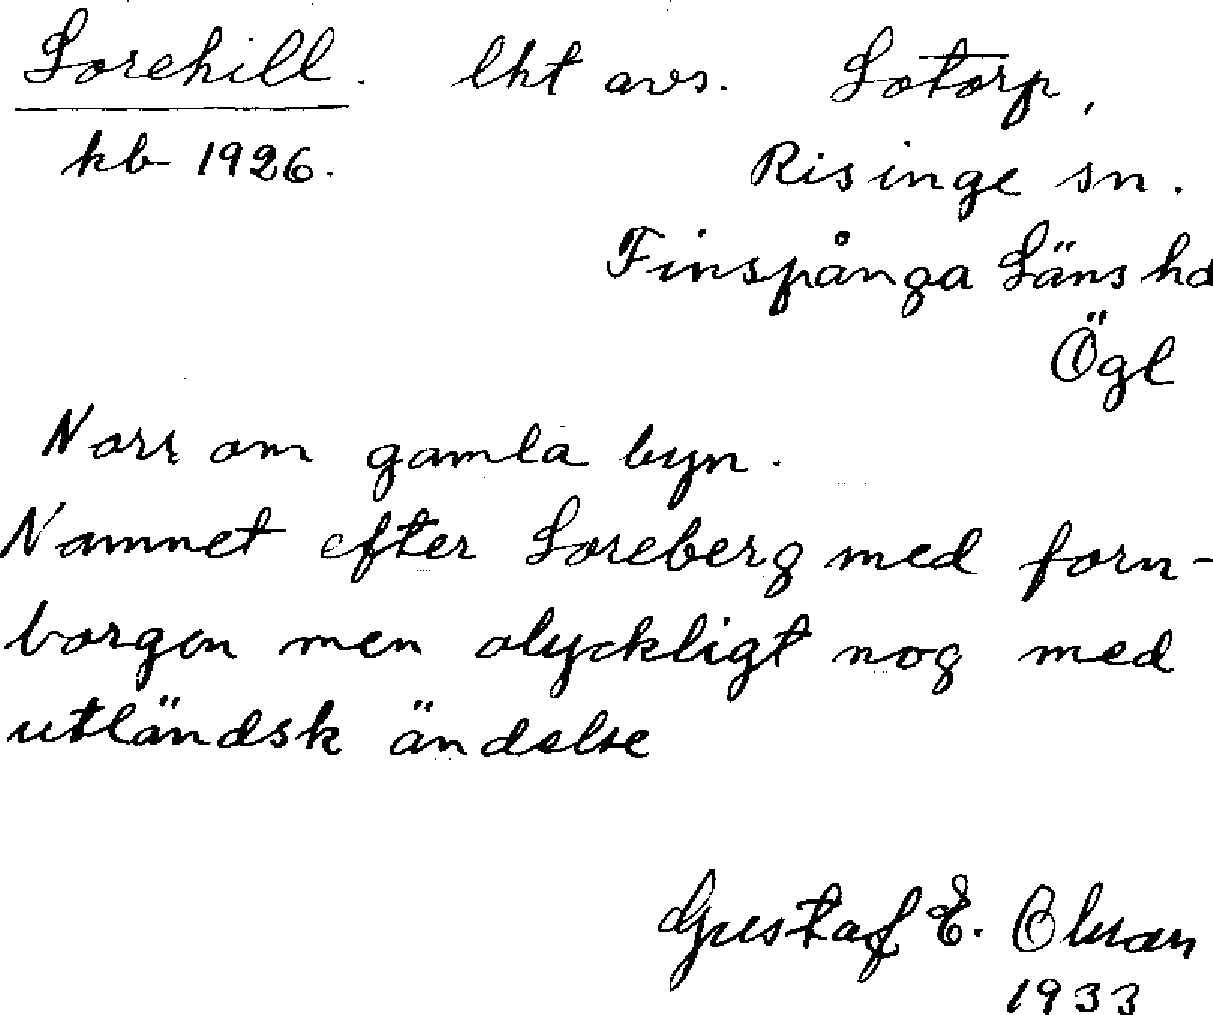 Lorehill. lht avs. Lotorp,
kb 1926. Risinge sn.
Finspånga Läns hd
Ögl
Norr om gamla byn.
Namnet efter Loreberg med forn-
borgen men olyckligt nog med
utländsk ändelse
Gustaf E. Olsson
1933